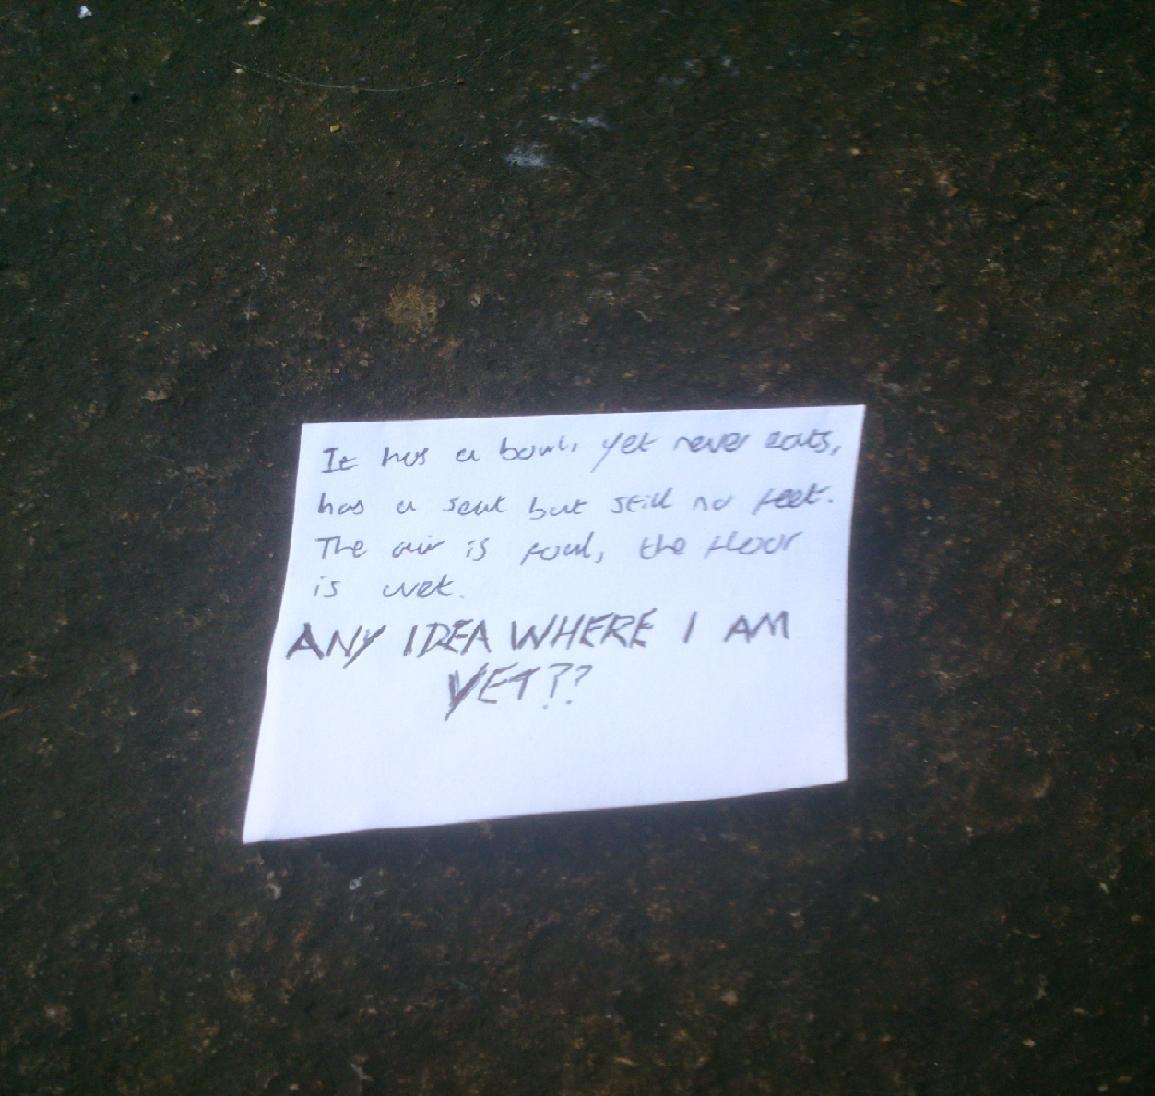 It has a bowl, yet never eats,
has a seat but still no feet.
The air is foul, the floor
is wet.
ANY IDEA WHERE I AM
YET??